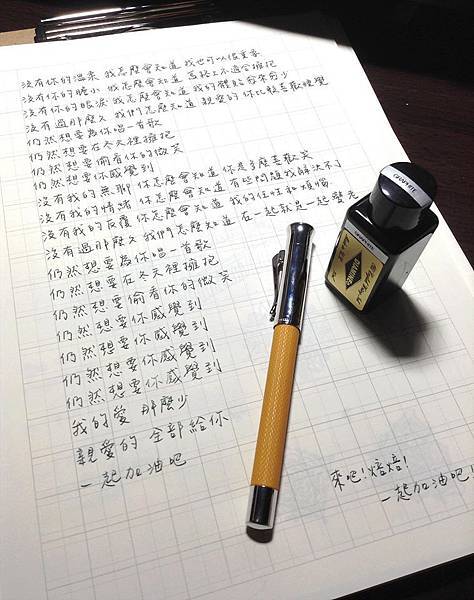 沒有你的溫柔 我怎麼會知道 我也可以很重要
沒有你的膽小 我怎麼會知道 馬路上不適合擁抱
沒有你的眼淚 我怎麼會知道 我的體貼愈來愈少
沒有過那麼久 我們怎麼知道 親愛的 你比較喜歡睡覺
仍然想要為你唱一首歌
仍然想要在冬天裡擁抱
仍然想要偷看你的微笑
仍然想要你感覺到
沒有我的無聊 你怎麼會知道 你是多麼喜歡笑
沒有我的情緒 你怎麼會知道 有些問題我解決不了
沒有我的反覆 你怎麼會知道 我的任性和煩惱
沒有過那麼久 我們怎麼知道 在一起就是一起變老
仍然想要為你唱一首歌
仍然想要在冬天裡擁抱
仍然想要偷看你的微笑
仍然想要你感覺到
仍然想要你感覺到
仍然想要你感覺到
仍然想要你感覺到
我的愛 那麼少
親愛的 全部給你
一起加油吧
來吧!焙焙!
一起加油吧!
GRAPHITE
GRAPHITE
DIAMINE